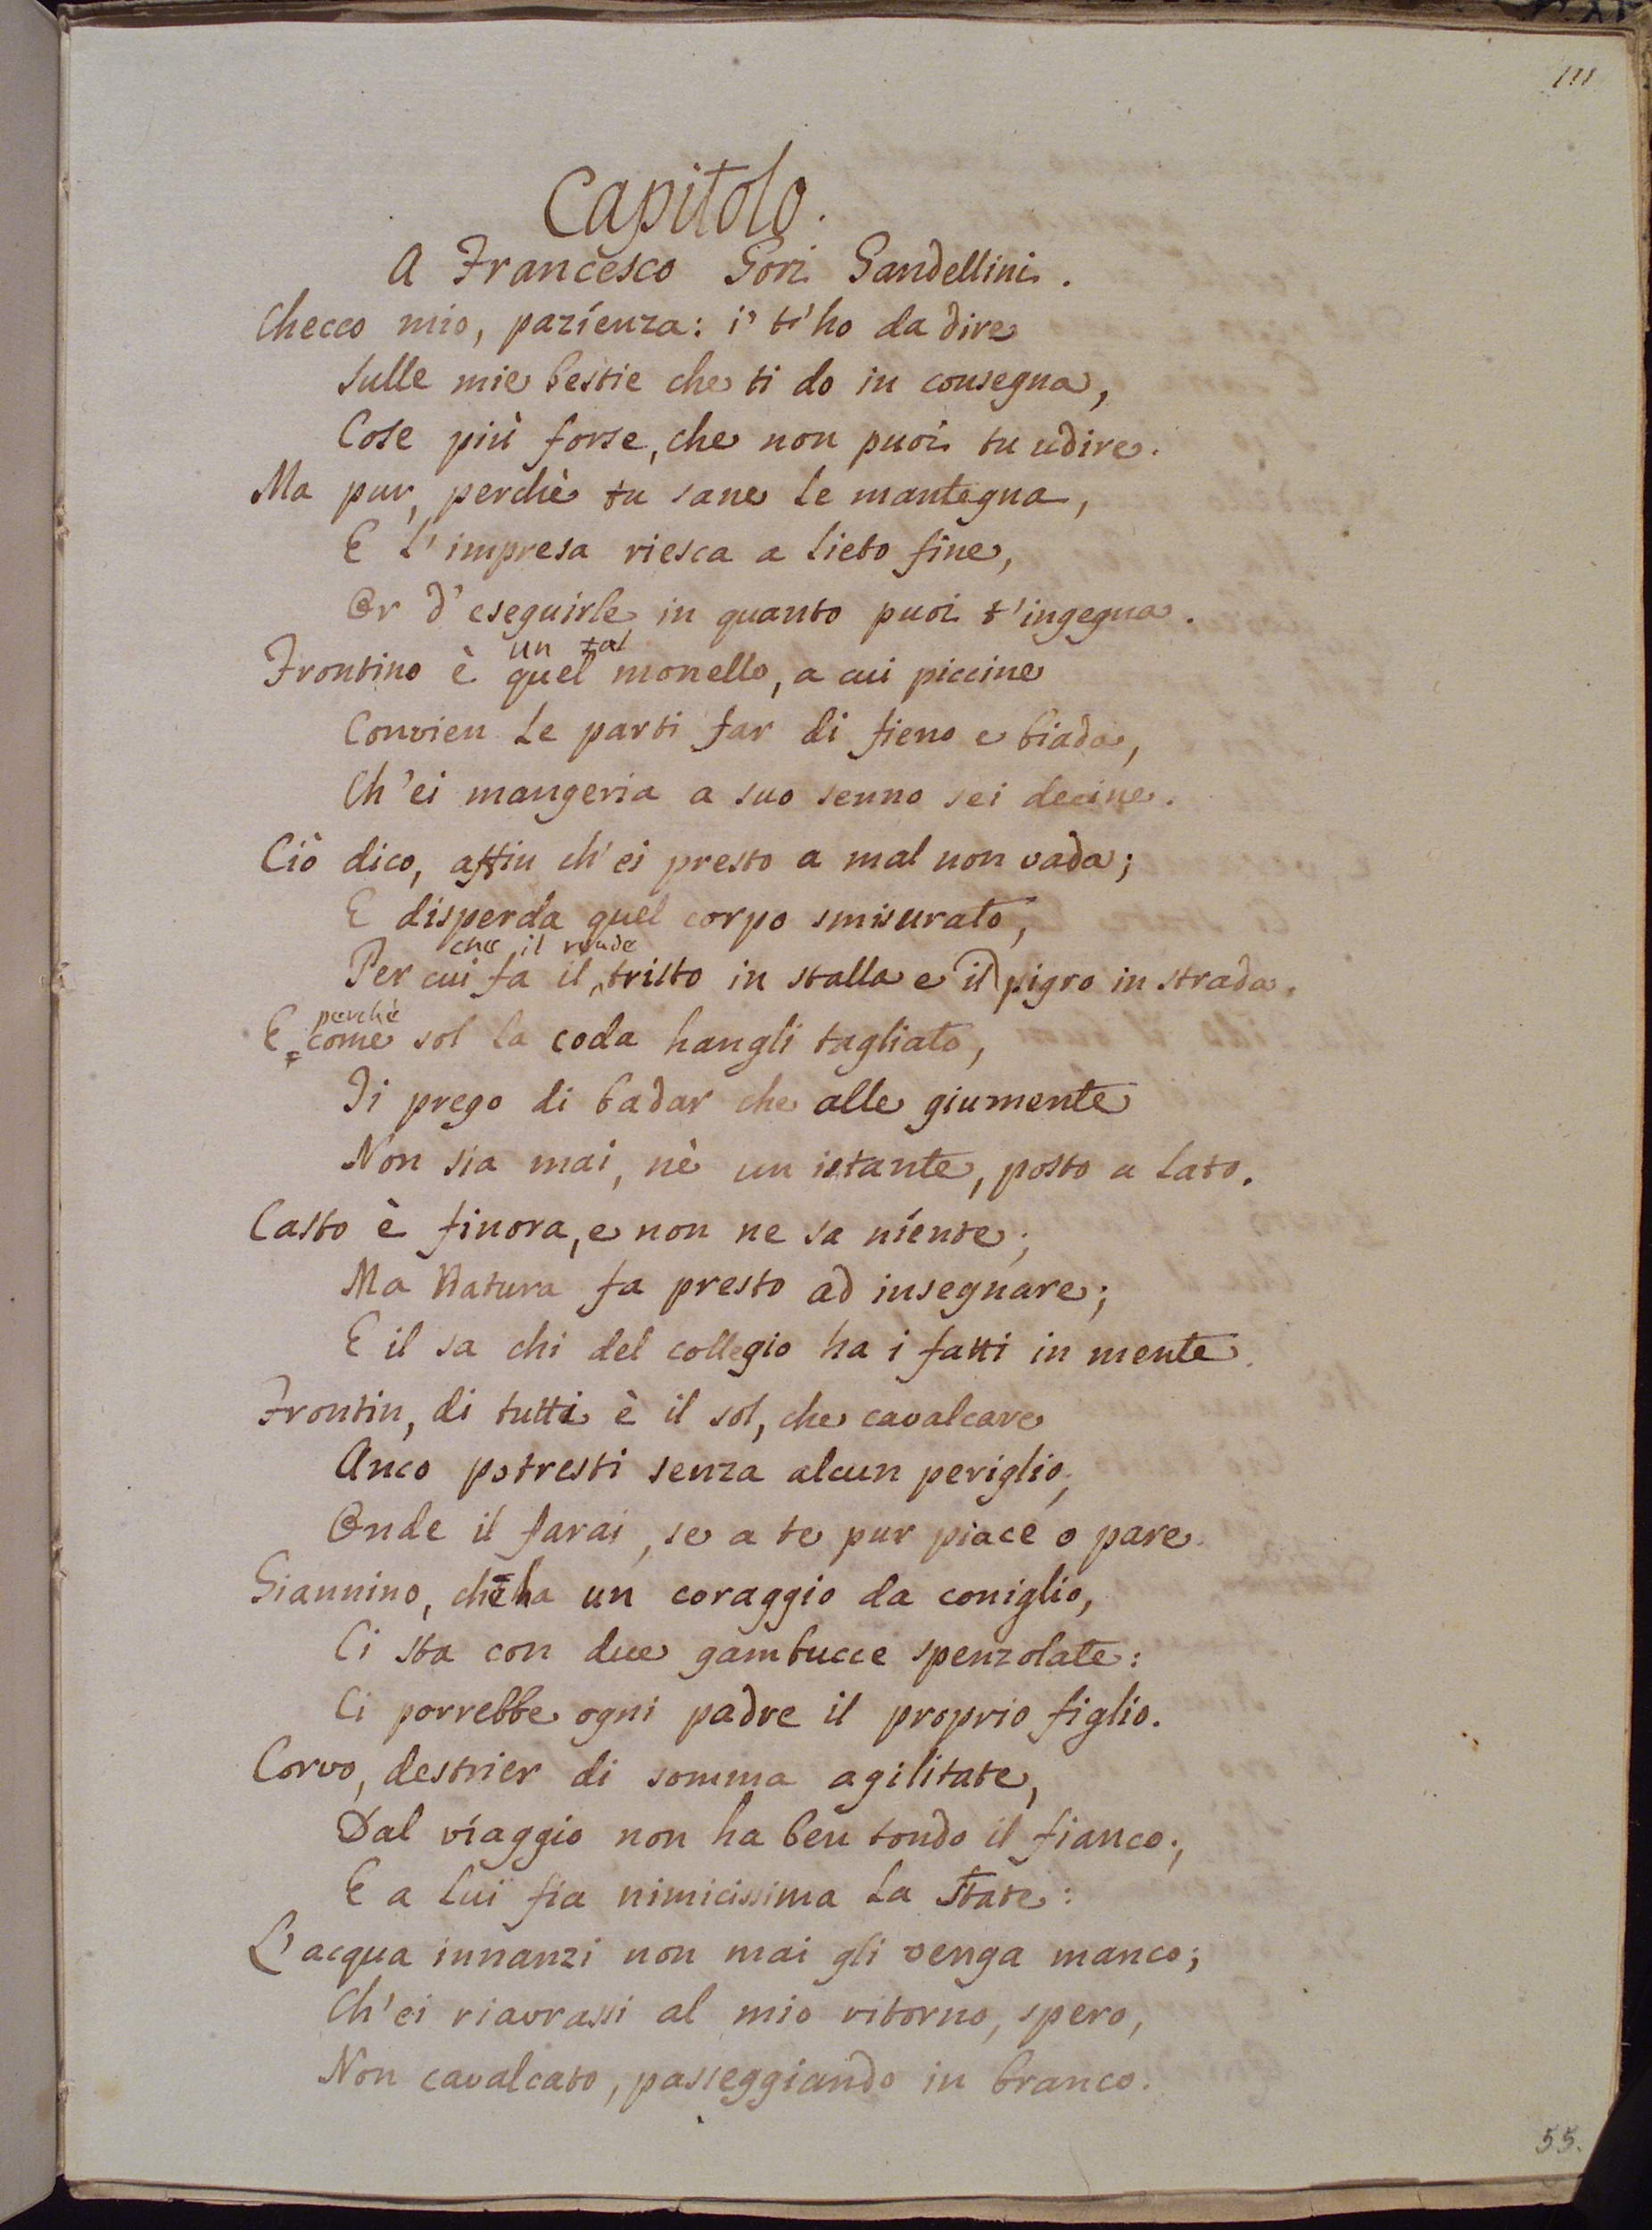 111
Capitolo.
A Francesco Gori Gandellini.
Checco mio, pazïenza: i' t'ho da dire
Sulle mie bestie che ti do in consegna,
Cose più forse, che non puoi tu udire.
Ma pur, perchè tu sane le mantegna,
E l'impresa riesca a lieto fine,
Or d'eseguirle in quanto puoi t'ingegna.
un tal
Frontino è quel monello, a cui piccine
Convien le parti far di fieno e biada,
Ch'ei mangeria a suo senno sei decine.
Ciò dico, affin ch'ei presto a mal non vada;
E disperda quel corpo smisurato,
che il rende
Per cui fa il tristo in stalla e il pigro in strada.
perchè
E come sol la coda hangli tagliato,
Ti prego di badar che alle giumente
Non sia mai, nè un istante, posto a lato.
Casto è finora, e non ne sa nïente;
Ma Natura fa presto ad insegnare;
E il sa chi del collegio ha i fatti in mente.
Frontin, di tutti è il sol, che cavalcare
Anco potresti senza alcun periglio;
Onde il farai, se a te pur piace o pare.
Giannino, che ha un coraggio da coniglio,
Ci sta con due gambucce spenzolate:
Ci porrebbe ogni padre il proprio figlio.
Corvo, destrier di somma agilitate,
Dal vïaggio non ha ben tondo il fianco;
E a lui fia nimicissima la State:
L'acqua innanzi non mai gli venga manco;
Ch'ei riavrassi al mio ritorno, spero,
Non cavalcato, passeggiando in branco.
55.